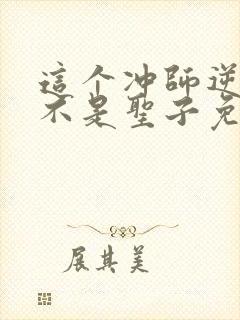 這个冲師逆
不是聖子兔
展其美